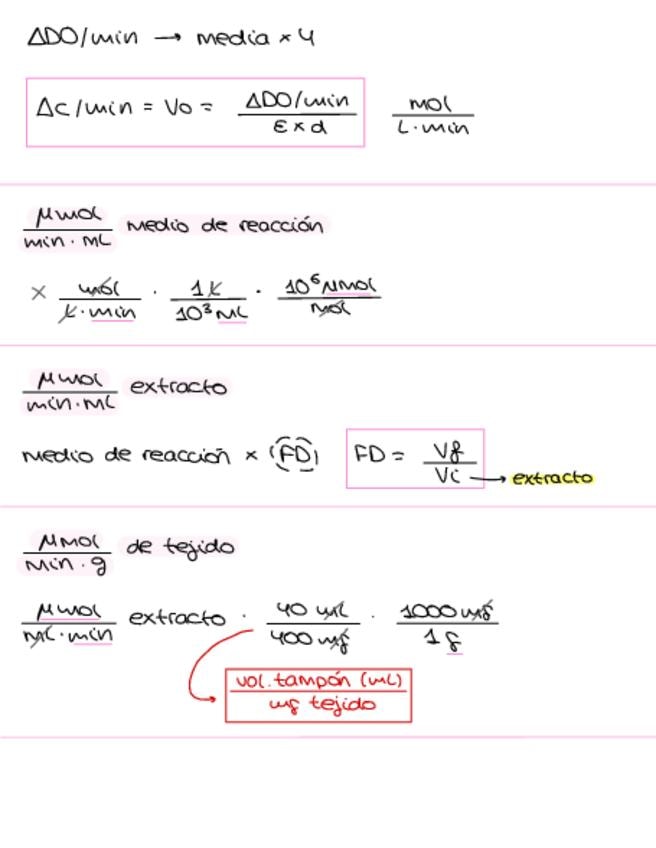 ΔDO/min → media × 4
Δc/min = Vo = ΔDO/min / ε × d   mol / L·min
μmol / min·mL medio de reacción
× mol / L·min · 1L / 10³ mL · 10⁶ μmol / mol
μmol / min·mL extracto
medio de reacción × (FD)   FD = Vf / Vi → extracto
μmol / min·g de tejido
μmol / mL·min extracto · 40 mL / 400 mg · 1000 mg / 1 g
vol. tampón (mL) / mg tejido